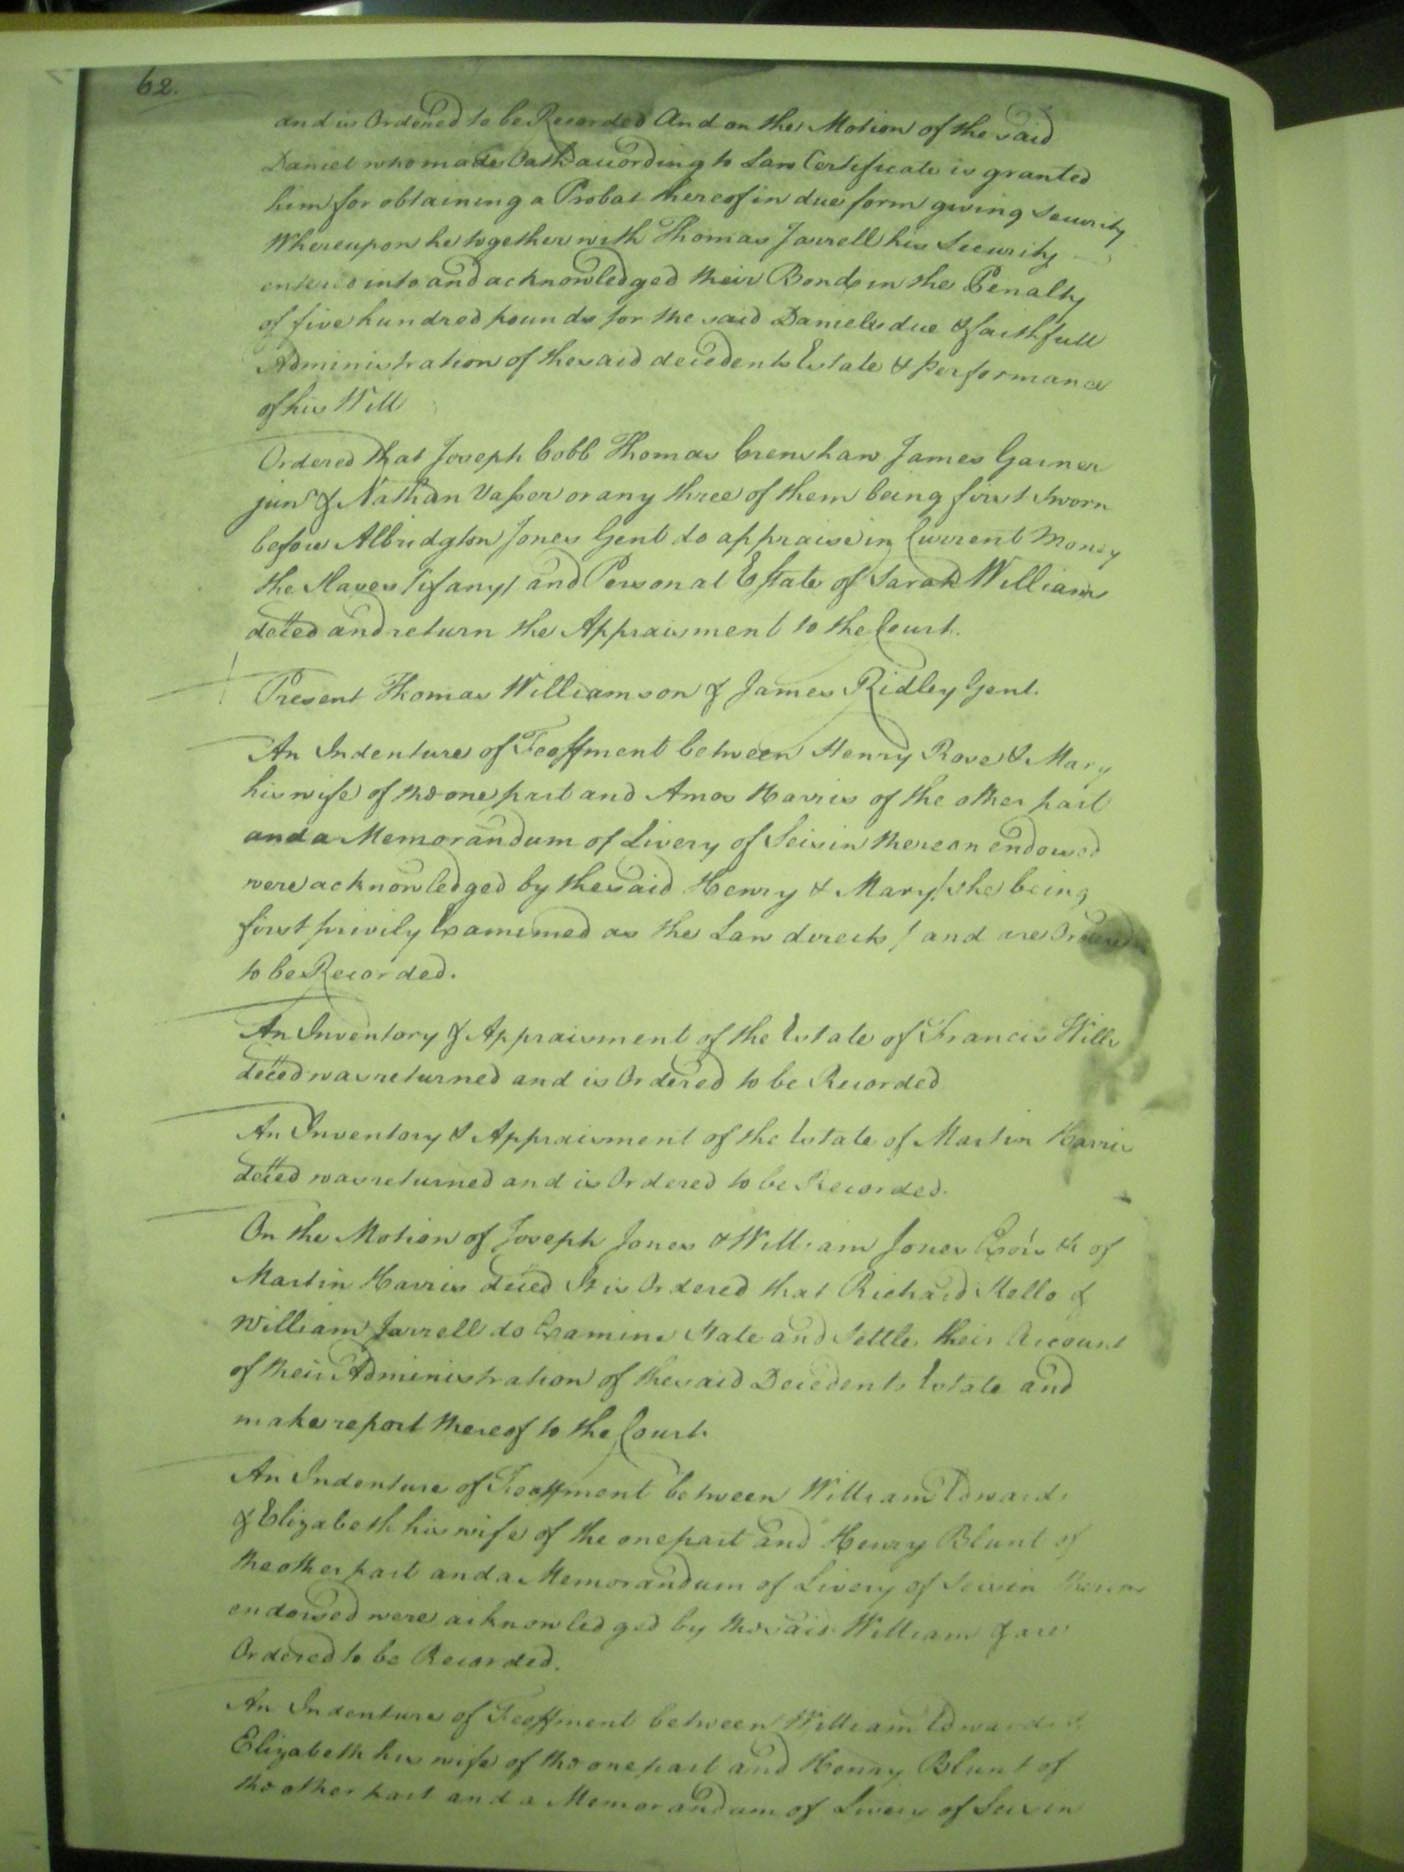 62.
and is Ordered to be Recorded And on the Motion of the said
Daniel who made Oath according to Law Certificate is granted
him for obtaining a Probat thereof in due form giving Security
Whereupon he together with Thomas Jarrell his Security
entered into and acknowledged their Bond in the Penalty
of five hundred pounds for the said Daniels due & faithfull
Administration of the said decedents Estate & performance
of his Will
Ordered that Joseph Cobb Thomas Crenshaw James Garner
junr. & Nathan Vasser or any three of them being first Sworn
before Albridgton Jones Gent do appraise in Current Money
the Slaves (if any) and Personal Estate of Sarah Williams
deced and return the Appraisment to the Court.
Present Thomas Williamson & James Ridley Gent.
An Indenture of Feoffment between Henry Rose & Mary
his wife of the one part and Amos Harris of the other part
and a Memorandum of Livery of Seisin thereon endorsed
were acknowledged by the said Henry & Mary (she being
first privily Examined as the Law directs) and are Ordered
to be Recorded.
An Inventory & Appraisment of the Estate of Francis
deced was returned and is Ordered to be Recorded
An Inventory & Appraisment of the Estate of Martin Harris
deced was returned and is Ordered to be Recorded.
On the Motion of Joseph Jones & William Jones Exors &c of
Martin Harris deced It is Ordered that Richard Kello &
William Jarrell do Examine State and Settle their Account
of their Administration of the said Decedents Estate and
make report thereof to the Court.
An Indenture of Feoffment between William Edwards
& Elizabeth his wife of the one part and Henry Blunt of
the other part and a Memorandum of Livery of Seisin thereon
endorsed were acknowledged by the said William & are
Ordered to be Recorded.
An Indenture of Feoffment between William Edwards &
Elizabeth his wife of the one part and Henry Blunt of
the other part and a Memorandum of Livery of Seisin